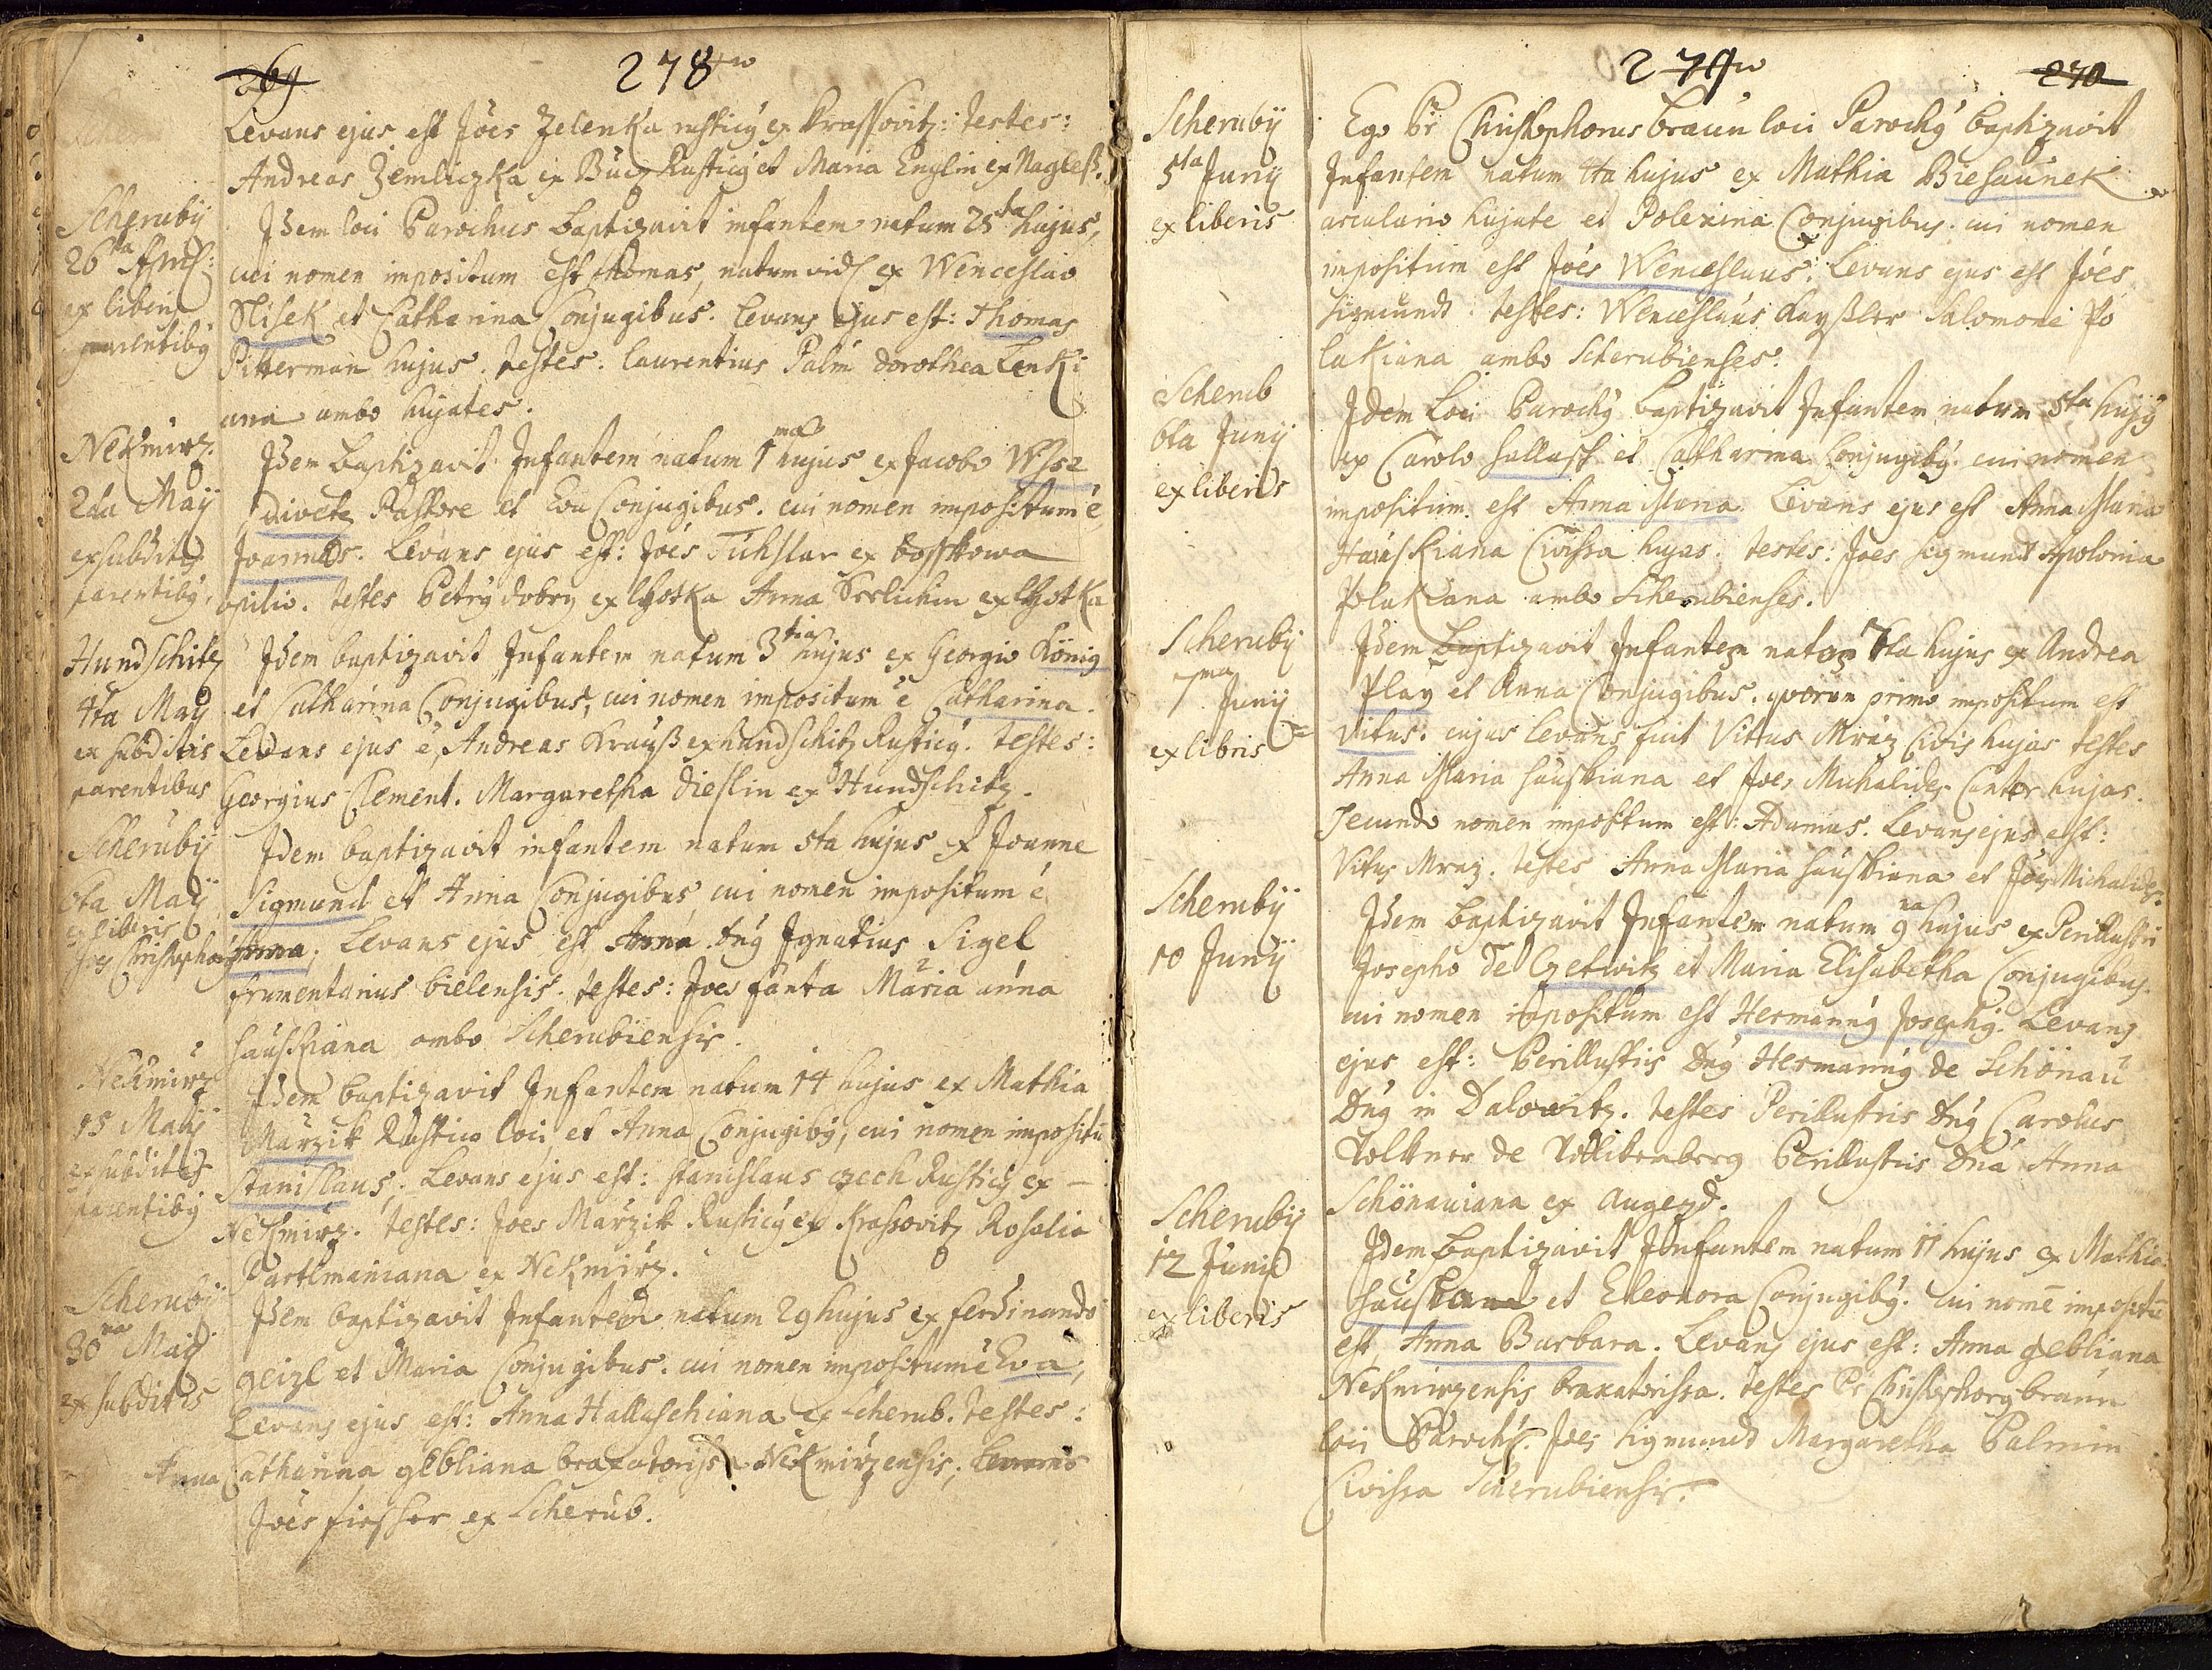 269
278
Levans ejus est Jões Zelenka rusticq ex Krassovitz: testes:
Andreas Zemliczka ex Bucz Rusticq et Maria Englin ex Nagless.
Scheruby
26ta April:
ex liberis
parentibq
Idem loci Parochus baptizavit infantem natum 25ta hujus,
cui nomen impositum est Thomas, natum vid: ex Wenceslao
Slisek et Catharina Conjugibus. Levans ejus est: Thomas
Pitterman hujus. testes: Laurentius Palm Dorothea Lenki
ana ambo hujates.
Nekmirz
2da Maÿ
ex subditis
parentibq
Idem baptizavit Infantem natum 1ma hujus ex Jacobo Wsse
divetz Pastore et Eva Conjugibus. cui nomen impositum e
Joannes. Levans ejus est: Jões Tuhslar ex bosskowa
opilio. testes Petrq dobry ex Lhotka Anna Srslichin ex Lhotka
Hundschitz
4ta Maÿ
ex subditis
parentibus
Idem baptizavit Infantem natum 3tia hujus ex Georgio König
et Catharina Conjugibus, cui nomen impositum e Catharina.
Levans ejus e, Andreas Krauß ex hundschitz Rusticq. testes:
Georgius Clement. Margaretha Dieslin ex Hundschitz.
Scherubÿ
6ta Maÿ
ex liberis
Idem baptizavit infantem natum 5ta hujus ex Joanne
Sigmund et Anna Conjugibus cui nomen impositum e
Jões Christophorq Anna. Levans ejus est Anna Dnq Ignatius Sigel
frumentarius bielensis. testes: Joes fanta Maria anna
hauskiana ambo Scherubiensis.
Nekmirz
15 Maÿ
ex subditis
parentibq
Idem baptizavit Infantem natum 14 hujus ex Mathia
Marzik Rustico loci et Anna Conjugibq, cui nomen impositū
Stanislaus. Levans ejus est: stanislaus czech Rusticq ex
Nekmirz. testes: Joes Marzik Rusticq ex Krassovitz Rosalia
Partlmaniana ex Nekmirz.
Scherubÿ
30na Maÿ
ex subditis
Idem baptizavit Infantem natum 29 hujus ex ferdinando
geizl et Maria Conjugibus. cui nomen impositum e Eva,
Levans ejus est: Anna Hallaschiana ex Scherub. testes:
Anna Catharina gebliana braxatorissa Nekmirzensis, Levans
Jões fischer ex Scherub.
279
270
Scherubÿ
5ta Junÿ
ex liberis
Ego Pr Christophorus braun loci Parochq baptizavit
Infantem natum 4ta hujus ex Mathia Biesaunek
arculario hujate et Polexina Conjugibus. cui nomen
impositum est Jões Wenceslaus. Levans ejus est Jões
Sigmundt: testes: Wenceslaus Kayßler Salomone Po
lakiana ambo Scherubienses.
Scherub
6ta Junÿ
ex liberis
Idem Loci Parochq baptizavit Infantem natum 5ta hujq
ex Carolo hallasch et Catharina Conjugibq. cui nomen
impositum est Anna Maria. Levans ejus est Anna Maria
Hauskiana Civissa hujas. testes: Joes Sigmundt Apolonia
Polakiana ambo Scherubienses.
Scherubÿ
7ma Junÿ
ex libris
Idem baptizavit Infantes natos 6ta hujus ex Andrea
Play et Anna Conjugibus. quorum primo impositum est
Vitus. cujus Levans fuit Vittus Mraz Civis hujas testes
Anna Maria hauskiana et Joes Michalides Cantor hujas.
Secundo nomen impositum est: Adamus. Levans ejus est:
Vitus Mraz. testes Anna Maria hauskiana et Jões Michalides.
Scherubÿ
10 Junÿ
Idem baptizavit Infantem natum 9na hujus ex Perillustri
Josepho de Czetwitz et Maria Elisabetha Conjugibus.
cui nomen impositum est Hermannq Josephq. Levans
ejus est: Perillustris Dnq Hermannq de Schönau
Dnq in Dalowitz. testes Perillustris Dnq Carolus
Tolkner de Vollibenberg Perillustris Dna Anna
Schönauiana ex augezd.
Scherubÿ
12 Junii
ex liberis
Idem baptizavit Infantem natum 11 hujus ex Mathia
hauska et Eleonora Conjugibq. cui nomē impositū
est Anna Barbara. Levans ejus est: Anna gebliana
Nekmirzensis braxatorissa. testes Pr Christophorq braun
loci Parochq. Jões Sigmundt Margaretha Palmin
Civissa Scherubiensis.